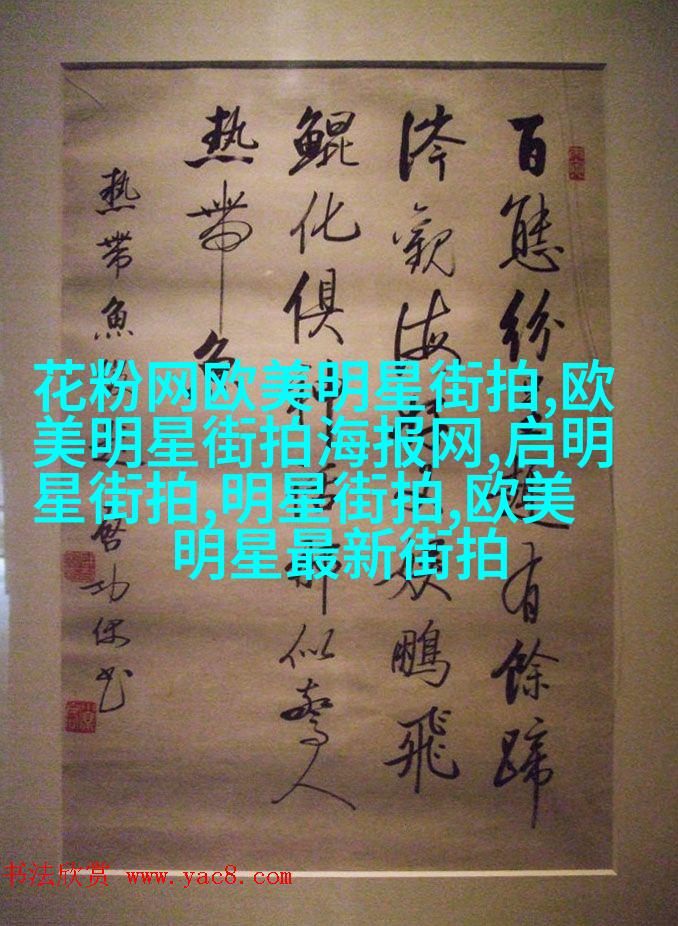 百態紛有餘蹄
涔觀海鵬飛
鯤化俱神話那似驚人
熱帶魚
熱帶魚啓功
花粉网欧美明星街拍,欧
美明星街拍海报网,启明
星街拍,明星街拍,欧美
明星最新街拍
书法欣赏 www.yac8.com